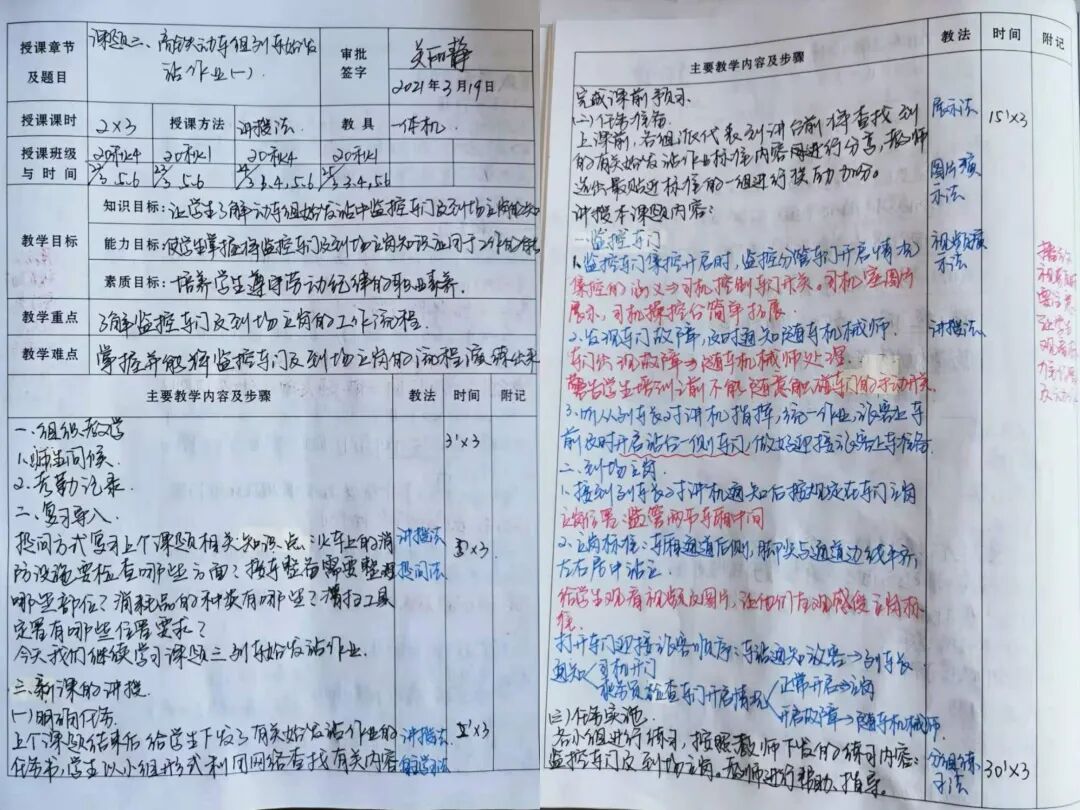 授课章节及题目
课题三、高铁动车组列车始发站作业(一).
审批签字
2021年3月19日
授课课时
2×3
授课方法
讲授法.
教具
一体机.
授课班级与时间
5.6
5.6
3.4,5.6
3.4,5.6
教学目标
知识目标:让学生了解动车组始发站中监控车门及到岗立岗的知识
能力目标:使学生掌握将监控车门及到岗立岗知识应用于工作的能力
素质目标:培养学生遵守劳动纪律的职业素养.
教学重点
了解监控车门及到岗立岗的工作流程.
教学难点
掌握并能将监控车门及到岗立岗的流程演练出来
主要教学内容及步骤
教法
时间
附记
一.组织教学
3'×3
1.师生问候.
2.考勤记录.
二.复习导入.
提问方式复习上个课题相关知识点:火车上的消
讲授法
防设施要检查哪些方面?接车整备需要整理
提问法
5'×3
哪些部位?消耗品的种类有哪些?清扫工具
定置有哪些位置要求?
今天我们继续学习课题三列车始发站作业.
三.新课的讲授.
(一)明确任务.
上个课题结束后给学生下发了有关始发站作业的
讲授法
任务书,学生以小组形式利用网络查找有关内容
自主学习法
主要教学内容及步骤
教法
时间
附记
完成课前预习.
(二)任务准备.
展示法
15'×3
上课前,各组派代表到讲台前将查找到
的有关始发站作业标准内容进行分享,教师
选出最贴近标准的一组进行奖励加分.
图片演示法
讲授本课题内容:
一.监控车门
视频播演示法
1.监控车门集控开启时,监控分管车门开启情况
集控的涵义⇒司机控制车门开关。司机室图片
展示、司机操控台简单拓展.
2.发现车门故障,及时通知随车机械师.
讲授法
车门出现故障⇒随车机械师处理.
警告学生培训之前不能随意触碰车门的手动开关.
3.听从列车长对讲机指挥,统一作业,旅客上车
前及时开启站台一侧车门,做好迎接旅客上车准备
二.到岗立岗.
1.接到列车长对讲机通知后按规定在车门立岗
立岗位置:监管两节车厢中间
2.立岗标准:车厢通道后侧,脚尖与通道边线平齐
左右居中站立.
给学生观看视频及图片,让他们直观感受立岗标
准.
打开车门迎接旅客顺序:车站通知放客→列车长
通知
司机开门
乘务员检查车门开启情况
正常开启⇒立岗
开启故障→随车机械师
(三)任务实施.
各小组进行练习,按照教师下发的练习内容:
分组练习法
30'×3
监控车门及到岗立岗.教师进行帮助、指导.